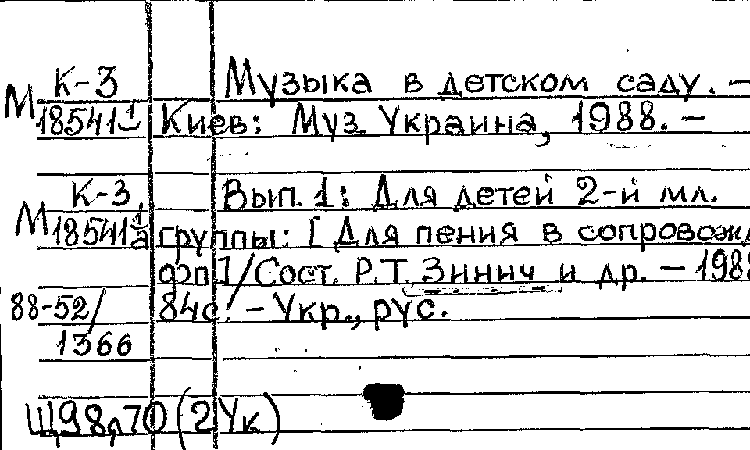 К-3 Музыка в детском саду. –
М 18541 1 Киев: Муз. Украина, 1988. –
К-3 Вып. 1: Для детей 2-й мл.
М 18541 1/а группы: [Для пения в сопровожд
фп]/Сост. Р.Т. Зинич и др. – 1988
88-52/ 84с. – Укр., рус.
1366
Щ98.70(2Ук)